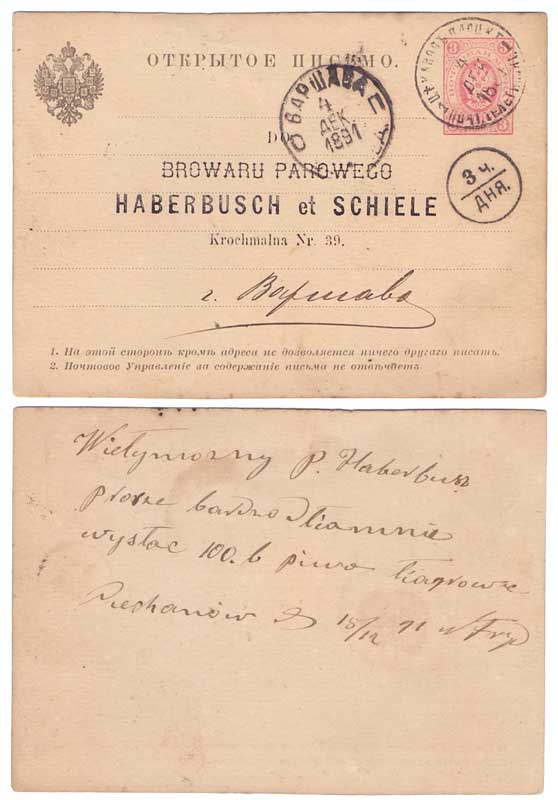 ОТКРЫТОЕ ПИСЬМО.
3
3
ВАРШАВА
4
ДЕК.
1891
4
ДЕК
3 ч.
ДНЯ.
DO
BROWARU PAROWEGO
HABERBUSCH et SCHIELE
Krochmalna Nr. 39.
г. Варшава
1. На этой сторонѣ кромѣ адреса не дозволяется ничего другаго писать.
2. Почтовое Управленіе за содержаніе письма не отвѣчаетъ.
Wielgmozny P. Haberbusz
prosze bardzo dla mnie
wysłac 100. b piwo
Ciechanów D 15/12 91